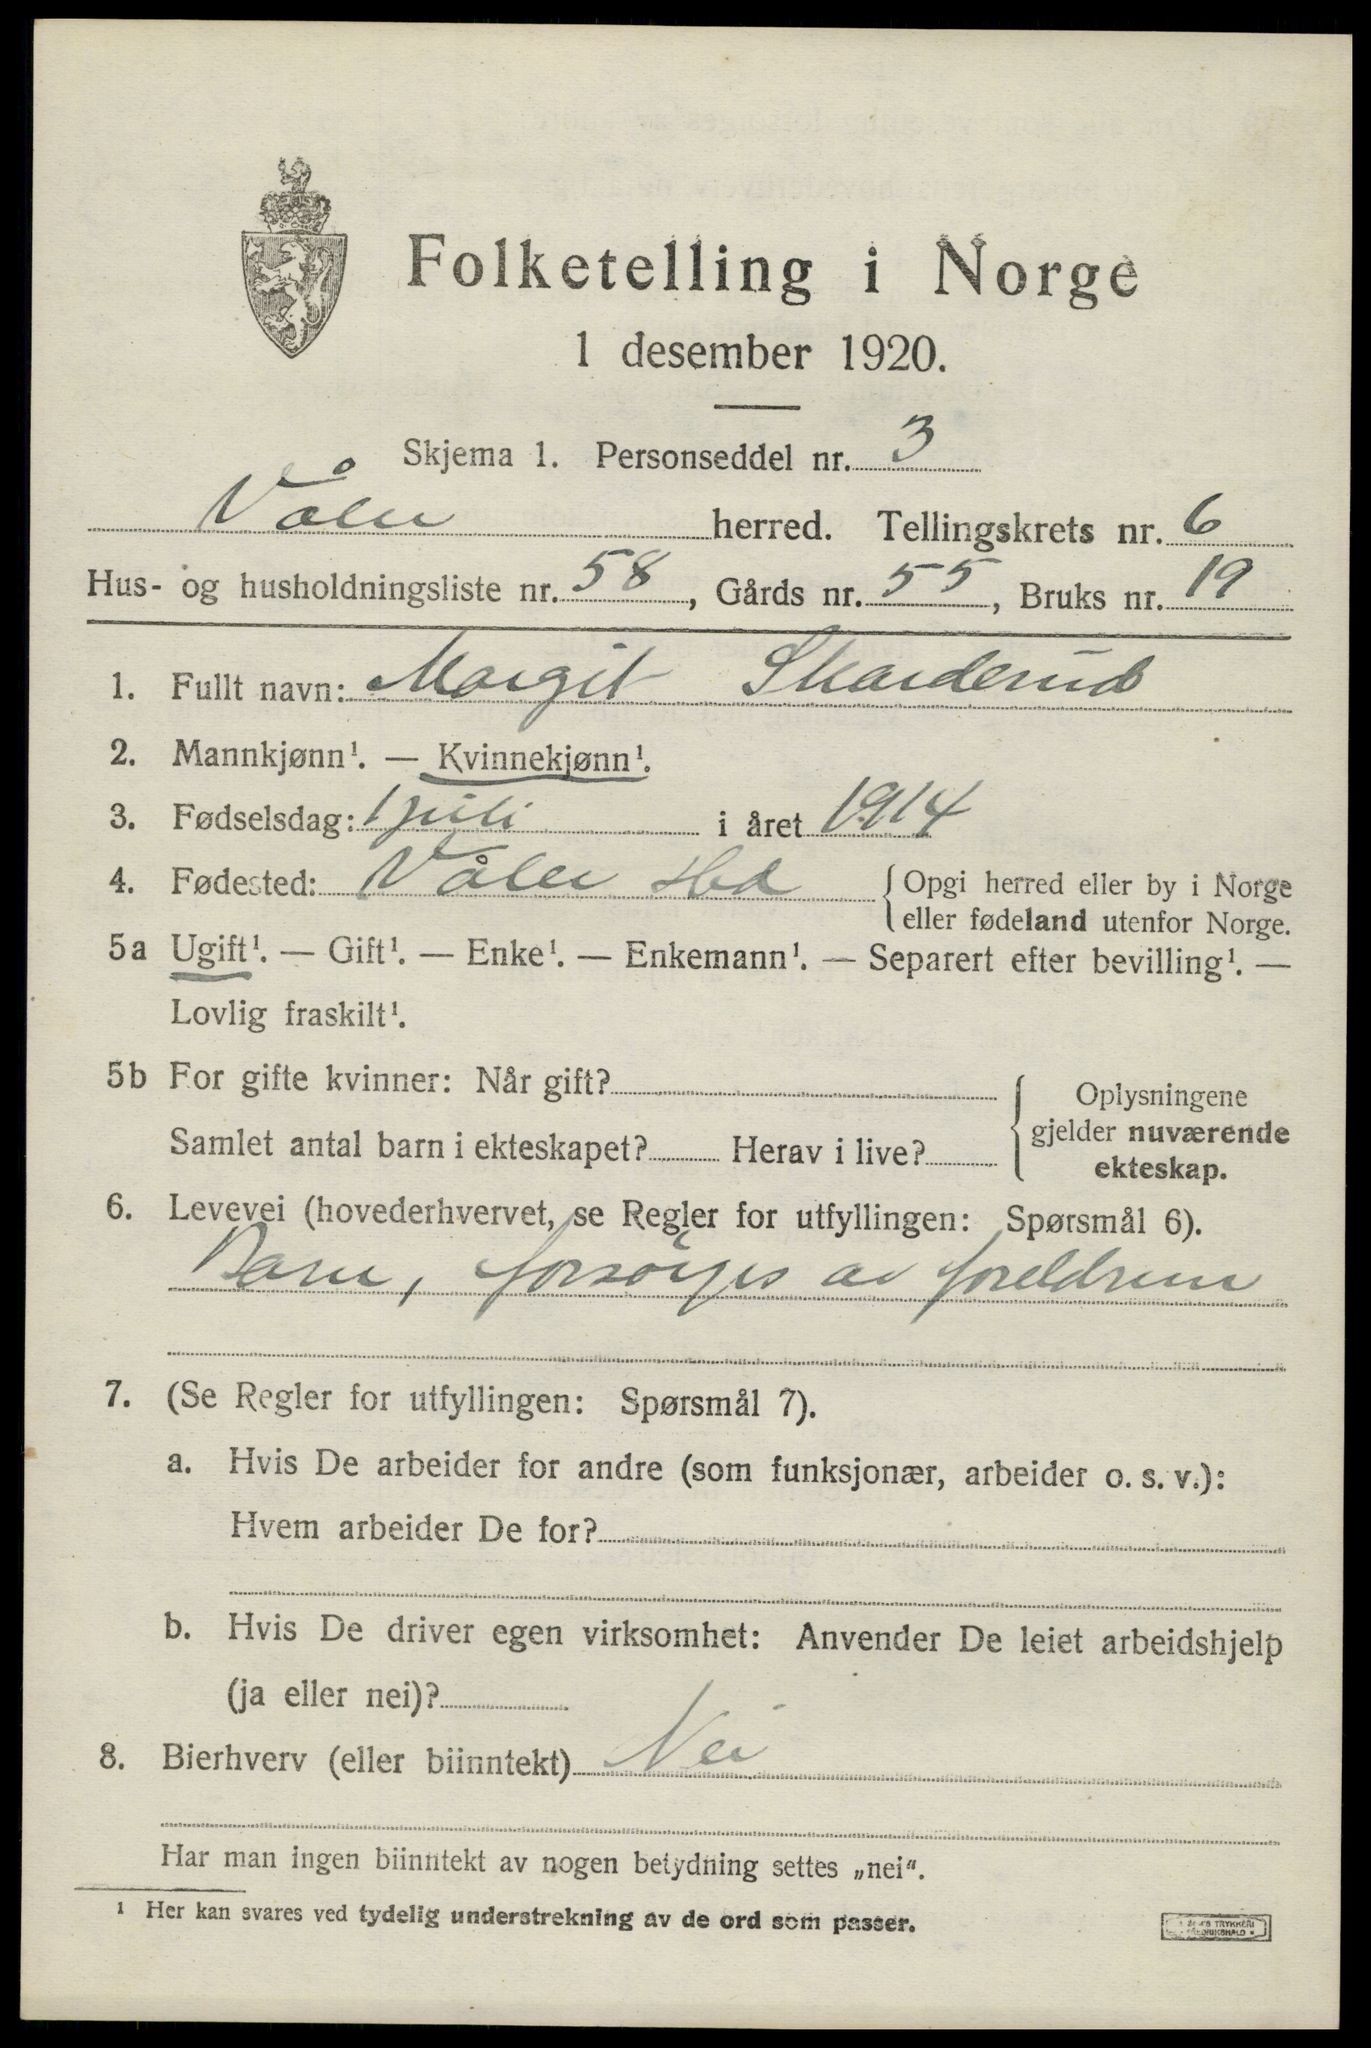 Folketelling i Norge
1 desember 1920.
Skjema 1. Personseddel nr. 3
Våler herred. Tellingskrets nr. 6
Hus- og husholdningsliste nr. 58, Gårds nr. 55, Bruks nr. 19
1. Fullt navn: Margit Skarderud
2. Mannkjønn¹. — Kvinnekjønn¹.
3. Fødselsdag: 1 juli i året 1914
4. Fødested: Våler Hed {Opgi herred eller by i Norge
eller fødeland utenfor Norge.
5a Ugift¹. — Gift¹. — Enke¹. — Enkemann¹. — Separert efter bevilling¹. —
Lovlig fraskilt¹.
5b For gifte kvinner: Når gift?
Samlet antal barn i ekteskapet? Herav i live?
Oplysningene
gjelder nuværende
ekteskap.
6. Levevei (hovederhvervet, se Regler for utfyllingen: Spørsmål 6).
Barn, forsörges av foreldrene
7. (Se Regler for utfyllingen: Spørsmål 7).
a. Hvis De arbeider for andre (som funksjonær, arbeider o. s. v.):
Hvem arbeider De for?
b. Hvis De driver egen virksomhet: Anvender De leiet arbeidshjelp
(ja eller nei)?
8. Bierhverv (eller biinntekt) Nei
Har man ingen biinntekt av nogen betydning settes „nei".
¹ Her kan svares ved tydelig understrekning av de ord som passer.
TRYKKERI
FREDRIKSHALD